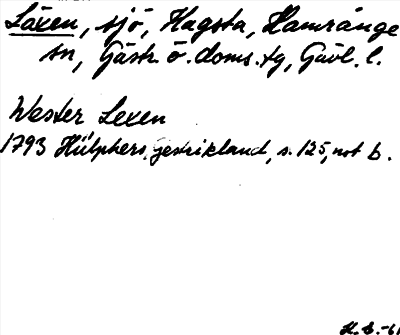 Läxen, sjö, Hagsta, Hamrånge
sn, Gästr. ö. doms. tg, Gävl. l.
Wester Lexen
1793 Hülphers, Jestrikland, s. 125, not b.
H. S. -61